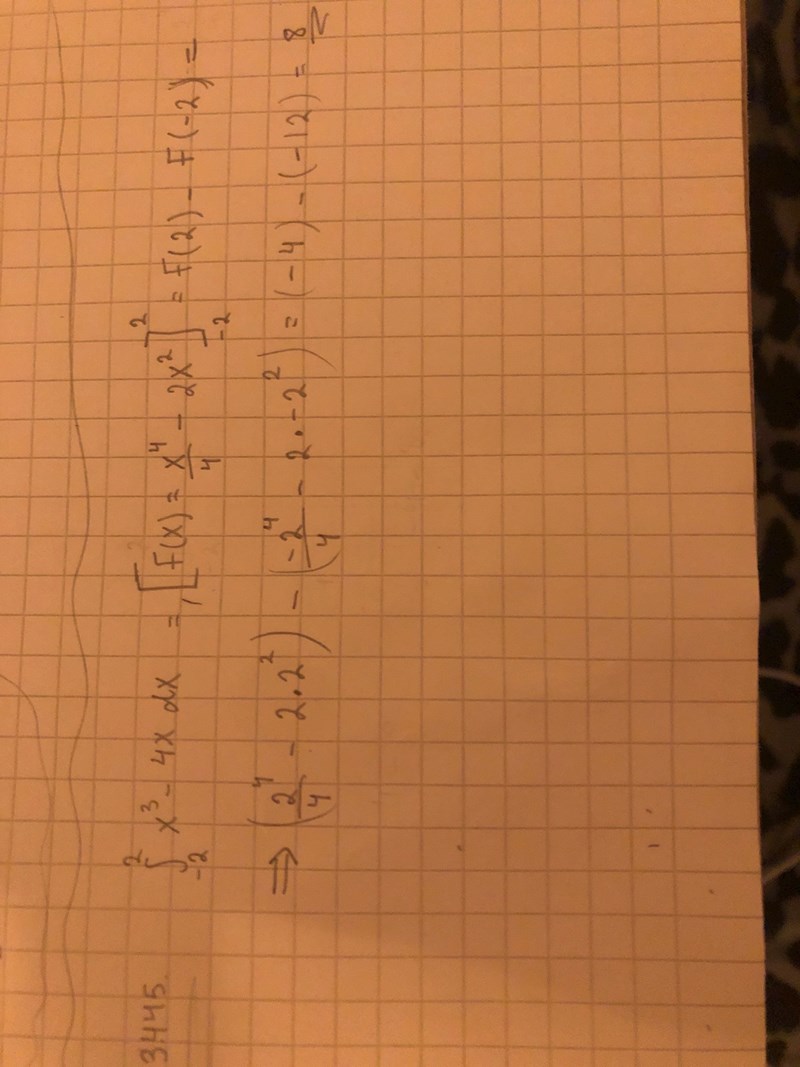 3445
∫₋₂² x³ - 4x dx = [F(x) = x⁴/4 - 2x²]₋₂² = F(2) - F(-2) =
⇒ (2⁴/4 - 2·2²) - (-2⁴/4 - 2·-2²) = (-4) - (-12) = 8